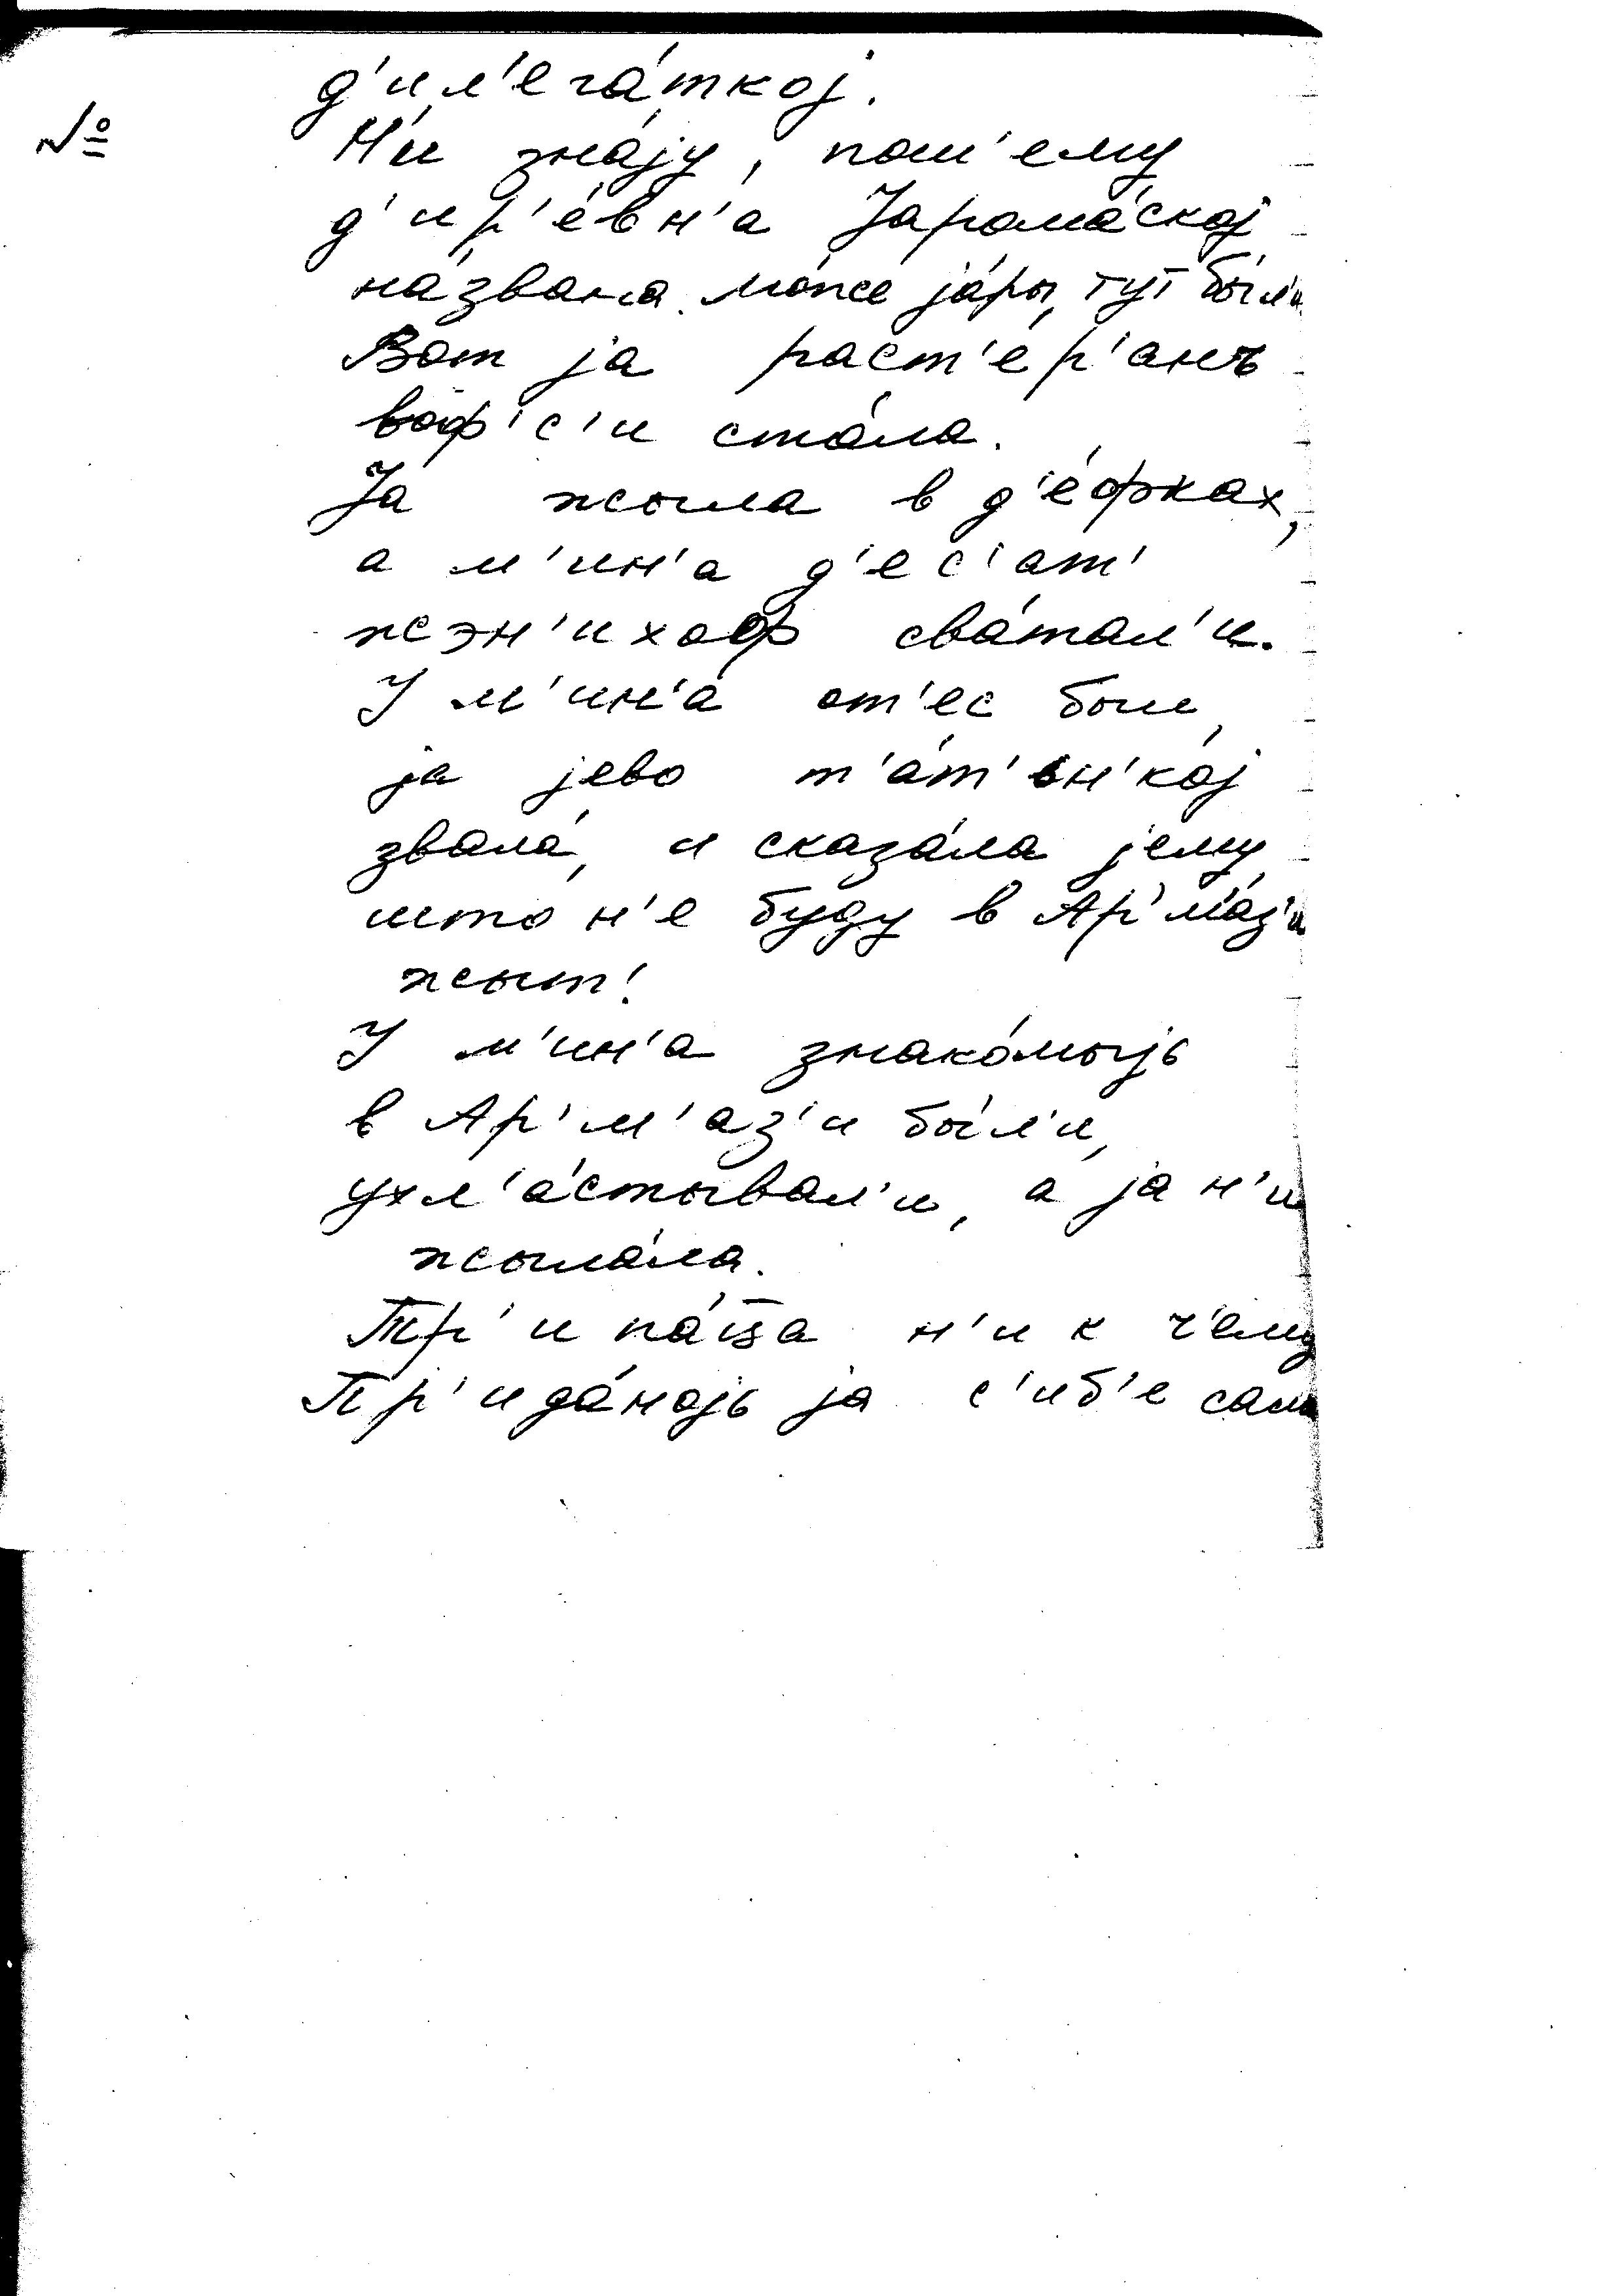 №
д'ил'ега́ткој.
Н'и зна́ју, пош'ему
д'ир'е́вн'а Јарома́ској
на́звана. мо́же ја́ры, тут бы́л'и
Вот ја раст'е́р'анъ
воф'с'и ста́ла.
Ја жыла в д'е́фках,
а м'ин'а д'ес'ат'
жэн'ихоф сва́тал'и.
У м'ин'а́ от'ес был,
ја јево т'а́т'ьн'кој
звала́, и сказа́ла јему,
што н'е буду в Ар'м'а́з'и
жыт!
У м'ин'а знако́мыјь
в Ар'м'аз'и бы́л'и,
ухл'а́стывал'и, а ја н'и
жыла́ла.
Тр'ипа́ца н'и к ч'ему
Пр'ида́нојь ја с'иб'е сама